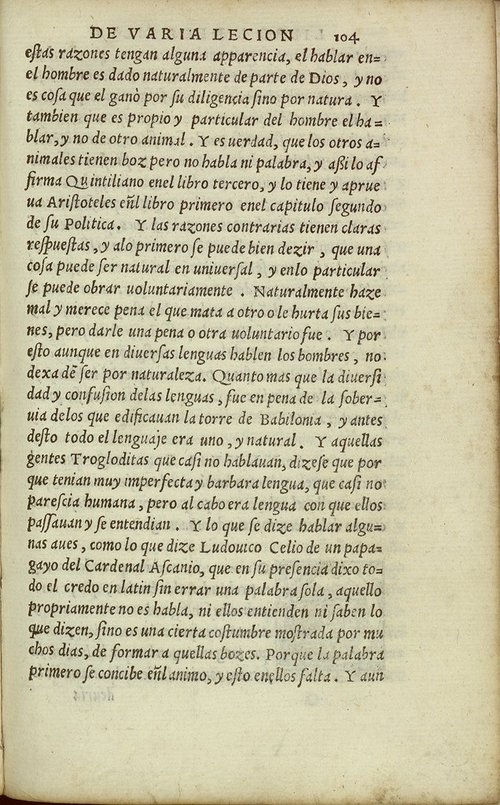 DE VARIA LECION 104
estas razones tengan alguna apparencia, el hablar en=
el hombre es dado naturalmente de parte de Dios, y no
es cosa que el ganò por su diligencia sino por natura. Y
tambien que es propio y particular del hombre el ha=
blar, y no de otro animal. Y es uerdad, que los otros a=
nimales tienen boz pero no habla ni palabra, y aßi lo af
firma Quintiliano enel libro tercero, y lo tiene y aprue
ua Aristoteles eñl libro primero enel capitulo segundo
de su Politica. Y las razones contrarias tienen claras
respuestas, y alo primero se puede bien dezir, que una
cosa puede ser natural en uniuersal, y enlo particular
se puede obrar uoluntariamente. Naturalmente haze
mal y merece pena el que mata a otro o le hurta sus bie=
nes, pero darle una pena o otra uoluntario fue. Y por
esto aunque en diuersas lenguas hablen los hombres, no
dexa dē ser por naturaleza. Quanto mas que la diuersi
dad y confusion delas lenguas, fue en pena de la sober=
uia delos que edificauan la torre de Babilonia, y antes
desto todo el lenguaje era uno, y natural. Y aquellas
gentes Trogloditas que casi no hablauan, dizese que por
que tenian muy imperfecta y barbara lengua, que casi no
parescia humana, pero al cabo era lengua con que ellos
passauan y se entendian. Y lo que se dize hablar algu=
nas aues, como lo que dize Ludouico Celio de un papa=
gayo del Cardenal Ascanio, que en su presencia dixo to=
do el credo en latin sin errar una palabra sola, aquello
propriamente no es habla, ni ellos entienden ni saben lo
que dizen, sino es una cierta costumbre mostrada por mu
chos dias, de formar a quellas bozes. Porque la palabra
primero se concibe eñl animo, y esto enellos falta. Y aun